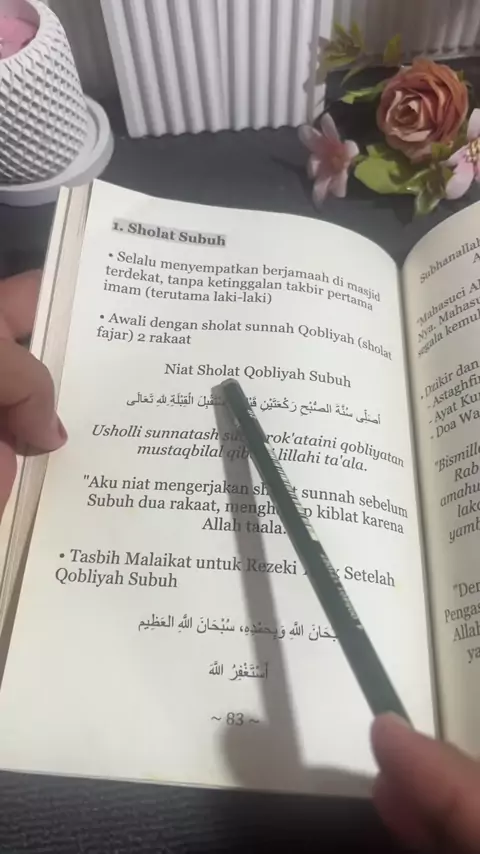 1. Sholat Subuh
• Selalu menyempatkan berjamaah di masjid
terdekat, tanpa ketinggalan takbir pertama
imam (terutama laki-laki)
• Awali dengan sholat sunnah Qobliyah (sholat
fajar) 2 rakaat
Niat Sholat Qobliyah Subuh
أُصَلِّى سُنَّةَ الصُّبْحِ رَكْعَتَيْنِ الْقِبْلَةِ لِلّٰهِ تَعَالَى
Usholli sunnatash rok'ataini qobliyatan
mustaqbilal lillahi ta'ala.
"Aku niat mengerjakan sunnah sebelum
Subuh dua rakaat, kiblat karena
Allah taala.
• Tasbih Malaikat untuk Rezeki Setelah
Qobliyah Subuh
اللَّهِ وَبِحَمْدِهِ، سُبْحَانَ اللَّهِ العَظِيم
أَسْتَغْفِرُ اللَّهَ
~ 83 ~
Subhanallah
"Mahasuci Al
Nya. Mahasu
segala kemul
• Dzikir dan
- Astaghfi
- Ayat Kur
- Doa Wa
"Bismill
Rab
amahu
lako
yamb
"Der
Pengas
Allah
ya